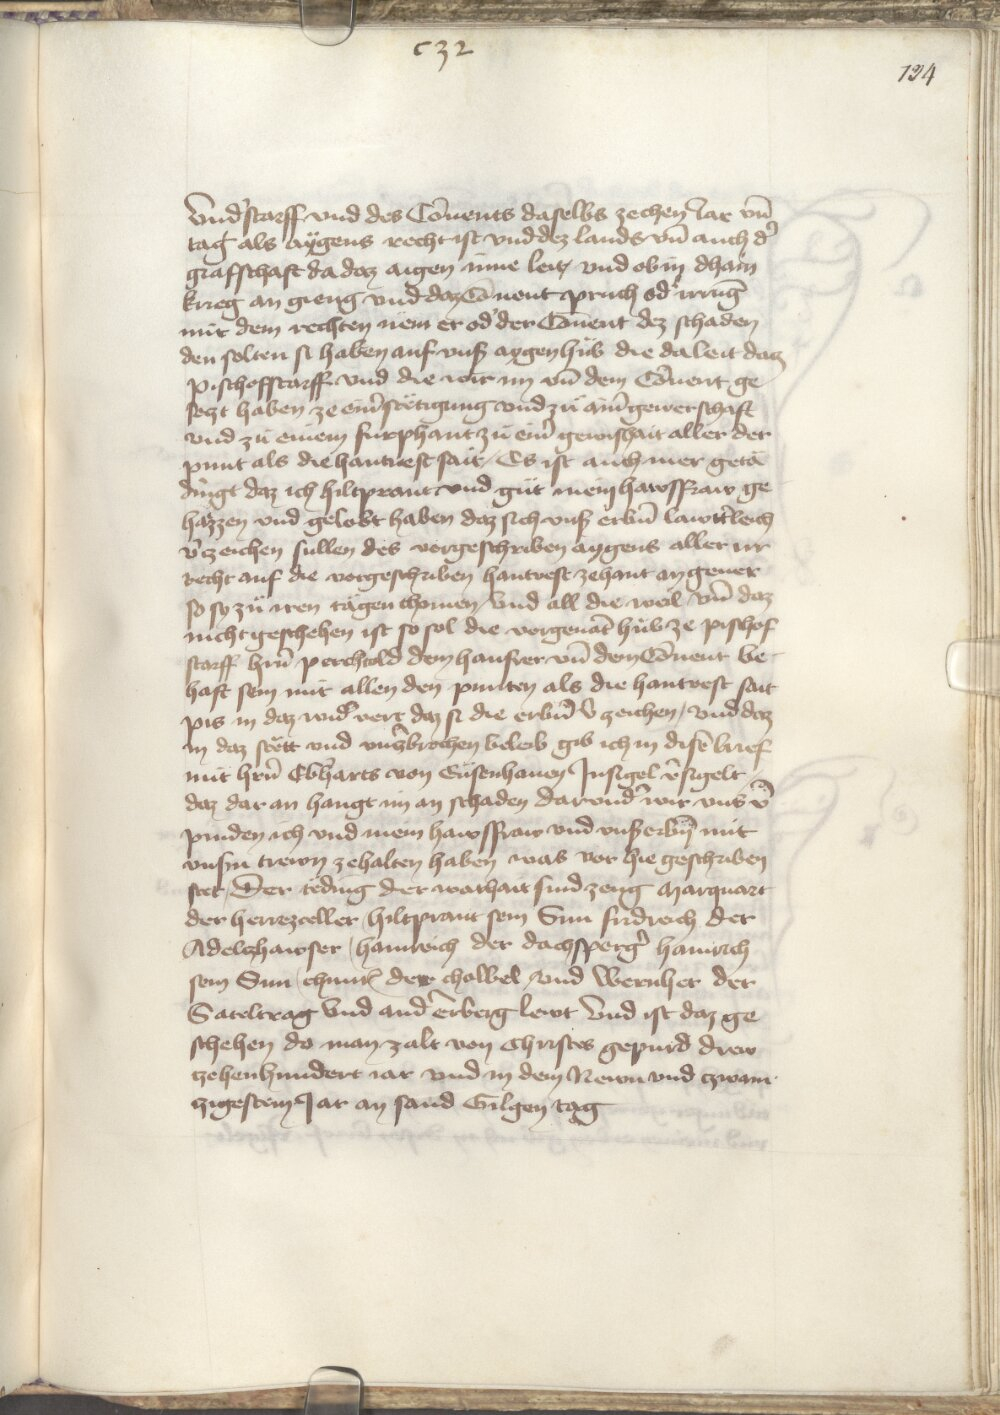 c32
194
Vnd'starff vnd des Cōuents daselbs zechen Jar vn̄
tag als aÿgens recht ist vnd dez lands vn̄ auch d'
grafschaft da daz aigen inne leit / vnd ob in dhain
krieg an gieng vnd daz Cōuent pruch od' irrūg
mit dem rechten nem er od' der Cōuent dez schaden
den solten si haben auf vnß aygen hůb die da leit daz
pischofstarff vnd die wir im vn̄ dem Cōuent ge
setzt haben ze eim' stëtigung vnd zů aim' gewerschaft
vnd zů einem furphant zů eim' gewishait aller der
punt als die hantuest sait / Es ist auch mer getā
dingt daz ich hiltprant vnd gůt mein hawsfraw ge
haizzen vnd gelobt haben daz sich vnß erbn̄ lawtt'leich
v'czeichen sullen des vorgeschriben aygens aller ir
recht auf die vorgeschriben hantuest zehant an geuer
so sy zů iren tägen chomen / Vnd all die weil vn̄ daz
nicht geschehen ist so sol die vorgenāt hůb ze pischof
starff hrn̄ perchtold dem hauser vn̄ dem Cōuent be
haft sein mit allen den punten als die hantuest sait
pis in daz wid'vert daz si die erbn̄ v'zeichen / vnd daz
in daz stëtt vnd vnz'brochen beleib gib ich in disē brief
mit hrn̄ Ebh'arts von Gusenhauen Jnsigel v'sigelt
daz dar an hangt im an schaden dar vnd' wir vnß v'
pinden ich vnd mein hawsfraw vnd vnß erbn̄ mit
vnsn̄ trewn zehalten haben was vor hie geschriben
stet / Der teding der warhait sind zeug Marquart
der herrezceller / hiltprant sein Sun fridreich der
Adelczhawser / hainreich der dachsperg' hainrich
sein Sun / der cholbel vnd Wernher der
Sateltrag Vnd and' erberg lewt Vnd ist daz ge
schehen do man zalt von Christes gepurd drew
zehenhundert iar vnd in dem Newn vnd czwain
czigestem Jar an sand Gilgen tag